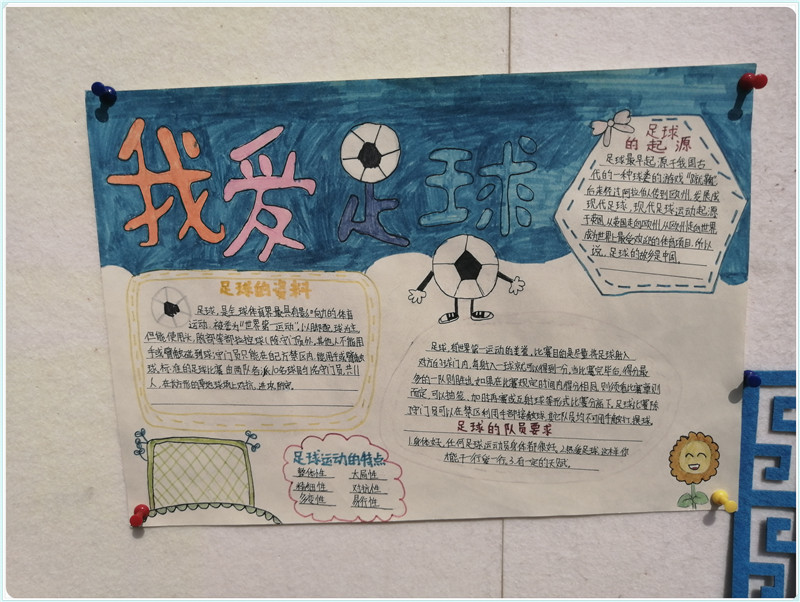 我爱足球
足球
的起源
足球最早起源于我国古
代的一种球类的游戏"蹴鞠"
后来经过阿拉伯人传到欧州,发展成
现代足球,现代足球运动起源
于英国,从英国走向欧州,从欧州走向世界
成为世界上最受欢迎的体育项目,所以
说,足球的故乡是中国。
足球的资料
足球,是全球体育界最具有影响力的体育
运动,被誉为"世界第一运动",以脚配球为主,
但能使用头、胸部等部拉控球(除守门员外,其他人不能用
手或臂触碰到球,守门员只能在自己方禁区内,能用手或臂触
球。标准的足球比赛由两队各派10名球员与1名守门员,共11
人,在长方形的草地球场上对抗、进攻、防守。
足球,有世界第一运动的美誉,比赛目的是尽量将足球射入
对方的球门内,每射入一球就可以得到一分,当比赛完毕后,得分最
多的一队则胜出,如果在比赛规定时间内得分相同,则须看比赛章则
而定,可以抽签、加时再赛或互射球等形式比赛分高下,足球比赛除
守门员可以在禁区利用手部接触球,其他队员均不可用手触打、摸球。
足球的队员要求
1.身体好,任何足球运动员身体都很好。2.热爱足球,这样你
才能干一行留一行。3.有一定的天赋。
足球运动的特点
整体性 大局性
精细性 对抗性
多变性 易行性